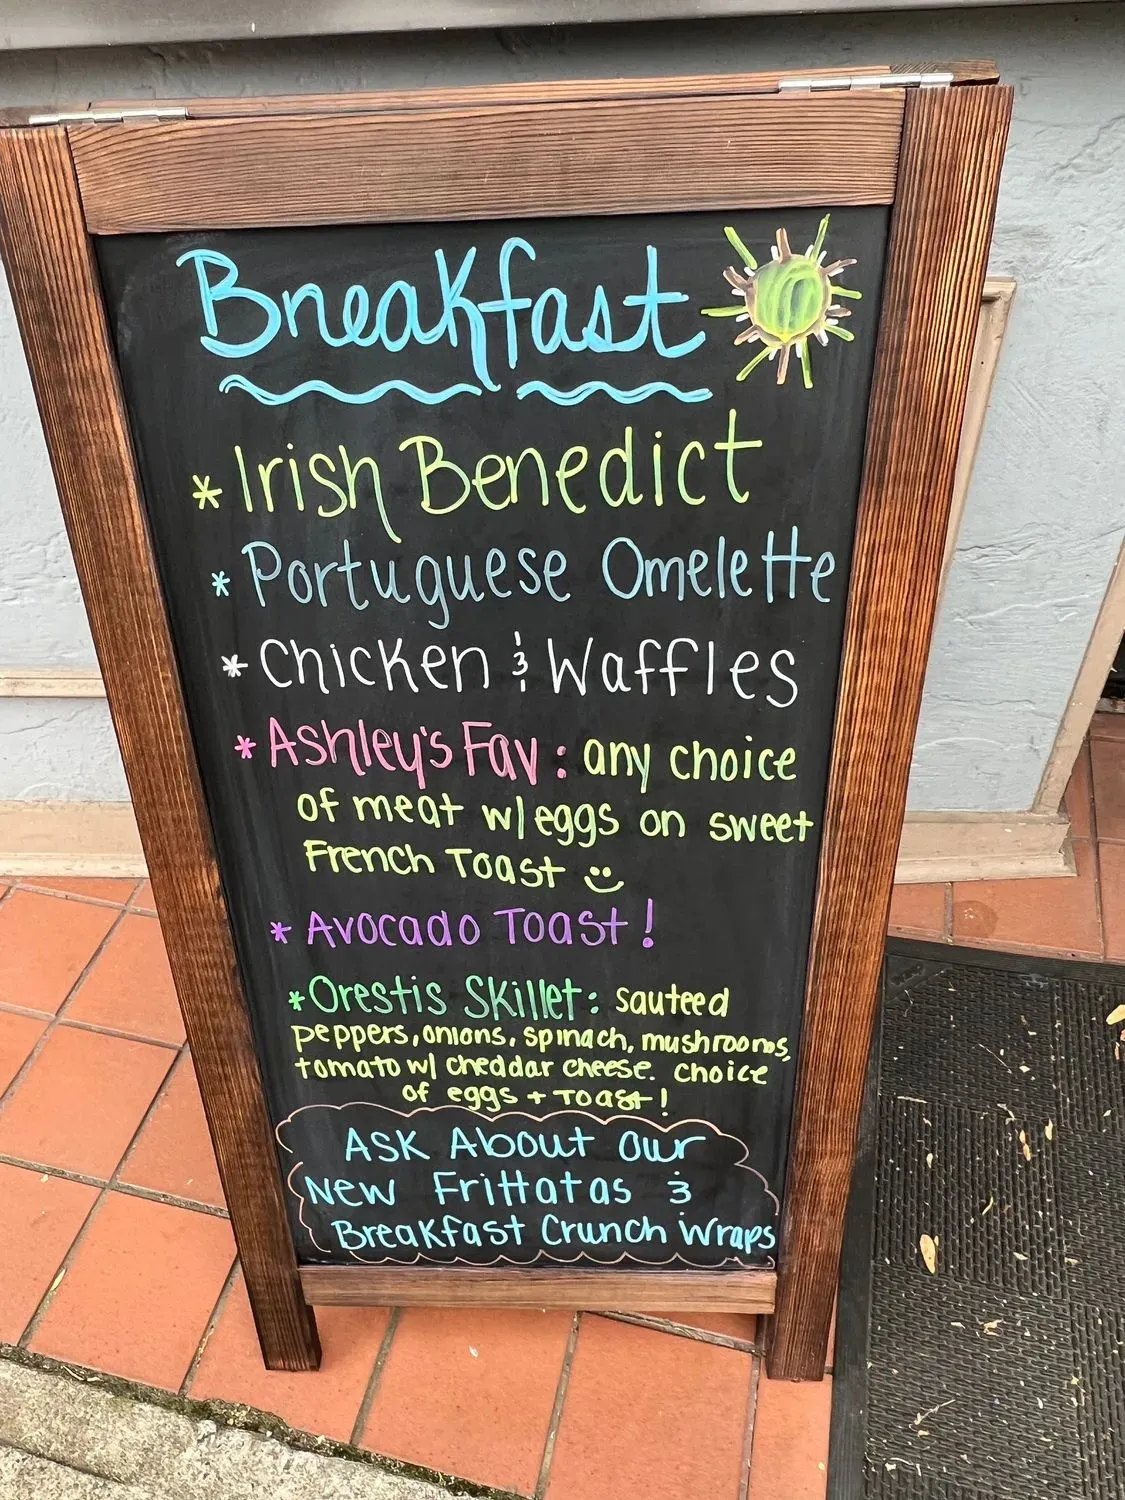 Breakfast
* Irish Benedict
* Portuguese Omelette
* Chicken & Waffles
* Ashley's Fav: any choice
of meat w/eggs on sweet
French Toast
* Avocado Toast!
* Orestis Skillet: sauteed
peppers, onions, spinach, mushrooms,
tomato w/ cheddar cheese. choice
of eggs + Toast!
ASK About our
New Frittatas &
Breakfast Crunch Wraps